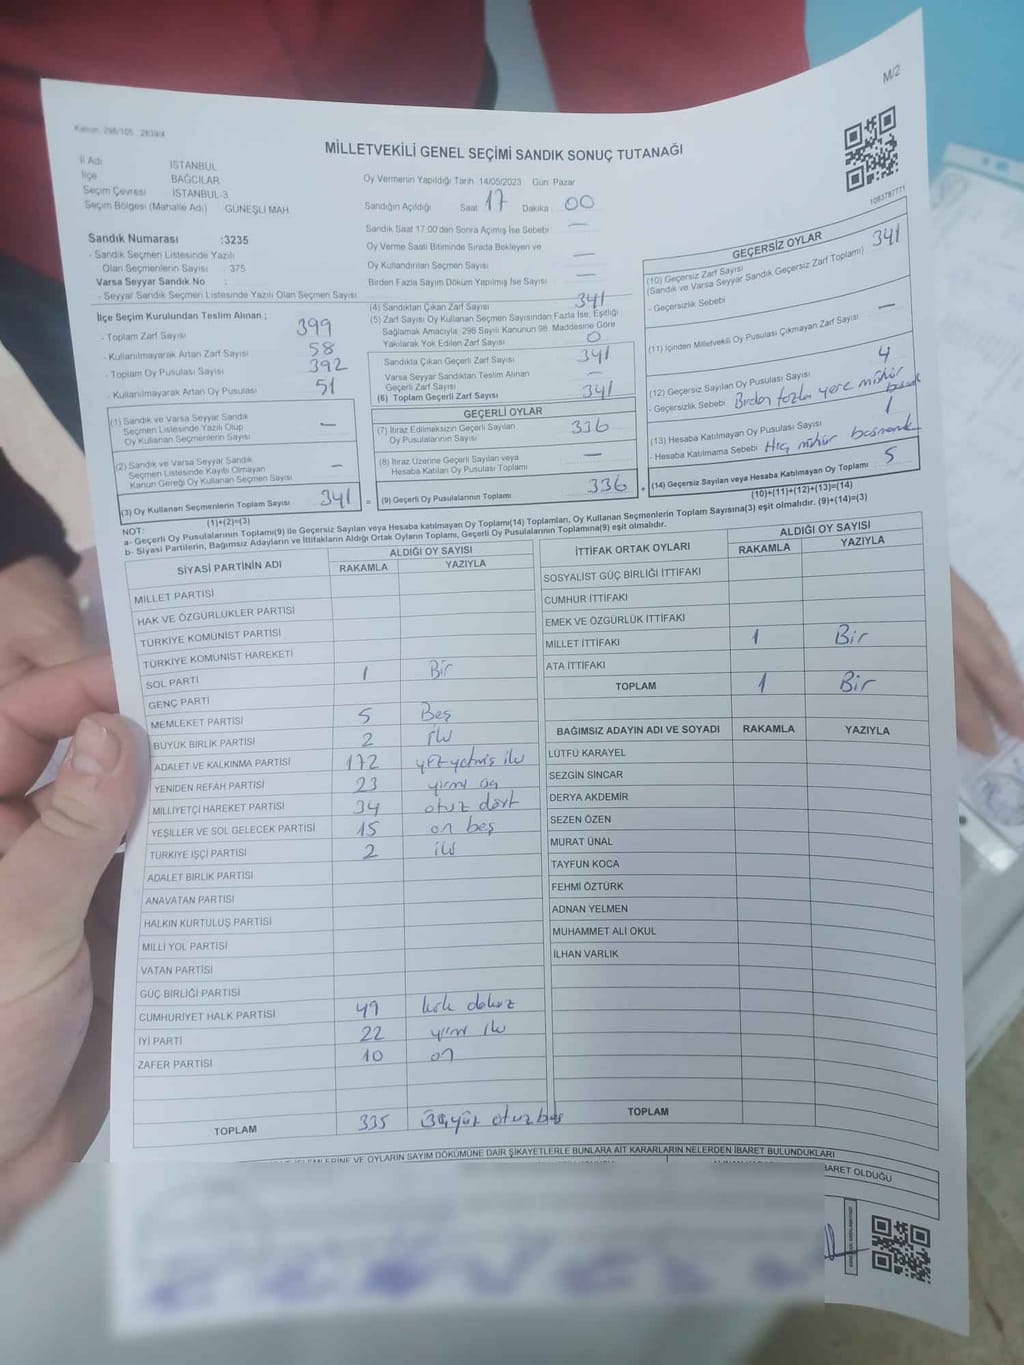 M/2
Kanun: 298/105 , 2839/4
MİLLETVEKİLİ GENEL SEÇİMİ SANDIK SONUÇ TUTANAĞI
1083787771
İl Adı İSTANBUL
İlçe BAĞCILAR
Seçim Çevresi İSTANBUL-3
Seçim Bölgesi (Mahalle Adı) GÜNEŞLİ MAH
Sandık Numarası :3235
- Sandık Seçmen Listesinde Yazılı
Olan Seçmenlerin Sayısı : 375
Varsa Seyyar Sandık No :
- Seyyar Sandık Seçmen Listesinde Yazılı Olan Seçmen Sayısı:
Oy Vermenin Yapıldığı Tarih: 14/05/2023 Gün :Pazar
Sandığın Açıldığı Saat 17 Dakika 00
Sandık Saat 17:00'den Sonra Açılmış İse Sebebi —
Oy Verme Saati Bitiminde Sırada Bekleyen ve
Oy Kullandırılan Seçmen Sayısı —
Birden Fazla Sayım Döküm Yapılmış İse Sayısı —
İlçe Seçim Kurulundan Teslim Alınan ;
- Toplam Zarf Sayısı 399
- Kullanılmayarak Artan Zarf Sayısı 58
- Toplam Oy Pusulası Sayısı 392
- Kullanılmayarak Artan Oy Pusulası 51
(1) Sandık ve Varsa Seyyar Sandık
Seçmen Listesinde Yazılı Olup
Oy Kullanan Seçmenlerin Sayısı —
(2) Sandık ve Varsa Seyyar Sandık
Seçmen Listesinde Kayıtlı Olmayan
Kanun Gereği Oy Kullanan Seçmen Sayısı —
(3) Oy Kullanan Seçmenlerin Toplam Sayısı 341 =
(1)+(2)=(3)
(4) Sandıktan Çıkan Zarf Sayısı 341
(5) Zarf Sayısı Oy Kullanan Seçmen Sayısından Fazla İse, Eşitliği
Sağlamak Amacıyla; 298 Sayılı Kanunun 98. Maddesine Göre
Yakılarak Yok Edilen Zarf Sayısı 0
Sandıkta Çıkan Geçerli Zarf Sayısı 341
Varsa Seyyar Sandıktan Teslim Alınan
Geçerli Zarf Sayısı —
(6) Toplam Geçerli Zarf Sayısı 341
GEÇERLİ OYLAR
(7) İtiraz Edilmeksizin Geçerli Sayılan
Oy Pusulalarının Sayısı 336
(8) İtiraz Üzerine Geçerli Sayılan veya
Hesaba Katılan Oy Pusulası Toplamı —
(9) Geçerli Oy Pusulalarının Toplamı 336 +
GEÇERSİZ OYLAR
341
(10) Geçersiz Zarf Sayısı
(Sandık ve Varsa Seyyar Sandık Geçersiz Zarf Toplamı)
- Geçersizlik Sebebi
(11) İçinden Milletvekili Oy Pusulası Çıkmayan Zarf Sayısı —
(12) Geçersiz Sayılan Oy Pusulası Sayısı 4
- Geçersizlik Sebebi Birden fazla yere mühür
(13) Hesaba Katılmayan Oy Pusulası Sayısı 1
- Hesaba Katılmama Sebebi Hiç mühür basmamak
(14) Geçersiz Sayılan veya Hesaba Katılmayan Oy Toplamı 5
(10)+(11)+(12)+(13)=(14)
NOT:
a- Geçerli Oy Pusulalarının Toplamı(9) ile Geçersiz Sayılan veya Hesaba katılmayan Oy Toplamı(14) Toplamları, Oy Kullanan Seçmenlerin Toplam Sayısına(3) eşit olmalıdır. (9)+(14)=(3)
b- Siyasi Partilerin, Bağımsız Adayların ve İttifakların Aldığı Ortak Oyların Toplamı, Geçerli Oy Pusulalarının Toplamına(9) eşit olmalıdır.
SİYASİ PARTİNİN ADI ALDIĞI OY SAYISI
RAKAMLA YAZIYLA
MİLLET PARTİSİ
HAK VE ÖZGÜRLÜKLER PARTİSİ
TÜRKİYE KOMÜNİST PARTİSİ
TÜRKİYE KOMÜNİST HAREKETİ
SOL PARTİ 1 Bir
GENÇ PARTİ
MEMLEKET PARTİSİ 5 Beş
BÜYÜK BİRLİK PARTİSİ 2 iki
ADALET VE KALKINMA PARTİSİ 172 yüzyetmiş iki
YENİDEN REFAH PARTİSİ 23 yirmi üç
MİLLİYETÇİ HAREKET PARTİSİ 34 otuz dört
YEŞİLLER VE SOL GELECEK PARTİSİ 15 on beş
TÜRKİYE İŞÇİ PARTİSİ 2 iki
ADALET BİRLİK PARTİSİ
ANAVATAN PARTİSİ
HALKIN KURTULUŞ PARTİSİ
MİLLİ YOL PARTİSİ
VATAN PARTİSİ
GÜÇ BİRLİĞİ PARTİSİ
CUMHURİYET HALK PARTİSİ 49 kırk dokuz
İYİ PARTİ 22 yirmi iki
ZAFER PARTİSİ 10 on
TOPLAM 335 üçyüz otuz beş
İTTİFAK ORTAK OYLARI ALDIĞI OY SAYISI
RAKAMLA YAZIYLA
SOSYALİST GÜÇ BİRLİĞİ İTTİFAKI
CUMHUR İTTİFAKI
EMEK VE ÖZGÜRLÜK İTTİFAKI
MİLLET İTTİFAKI 1 Bir
ATA İTTİFAKI
TOPLAM 1 Bir
BAĞIMSIZ ADAYIN ADI VE SOYADI RAKAMLA YAZIYLA
LÜTFÜ KARAYEL
SEZGİN SİNCAR
DERYA AKDEMİR
SEZEN ÖZEN
MURAT ÜNAL
TAYFUN KOCA
FEHMİ ÖZTÜRK
ADNAN YELMEN
MUHAMMET ALİ OKUL
İLHAN VARLIK
TOPLAM
İŞLEMLERİNE VE OYLARIN SAYIM DÖKÜMÜNE DAİR ŞİKAYETLERLE BUNLARA AİT KARARLARIN NELERDEN İBARET BULUNDUKLARI
İBARET OLDUĞU